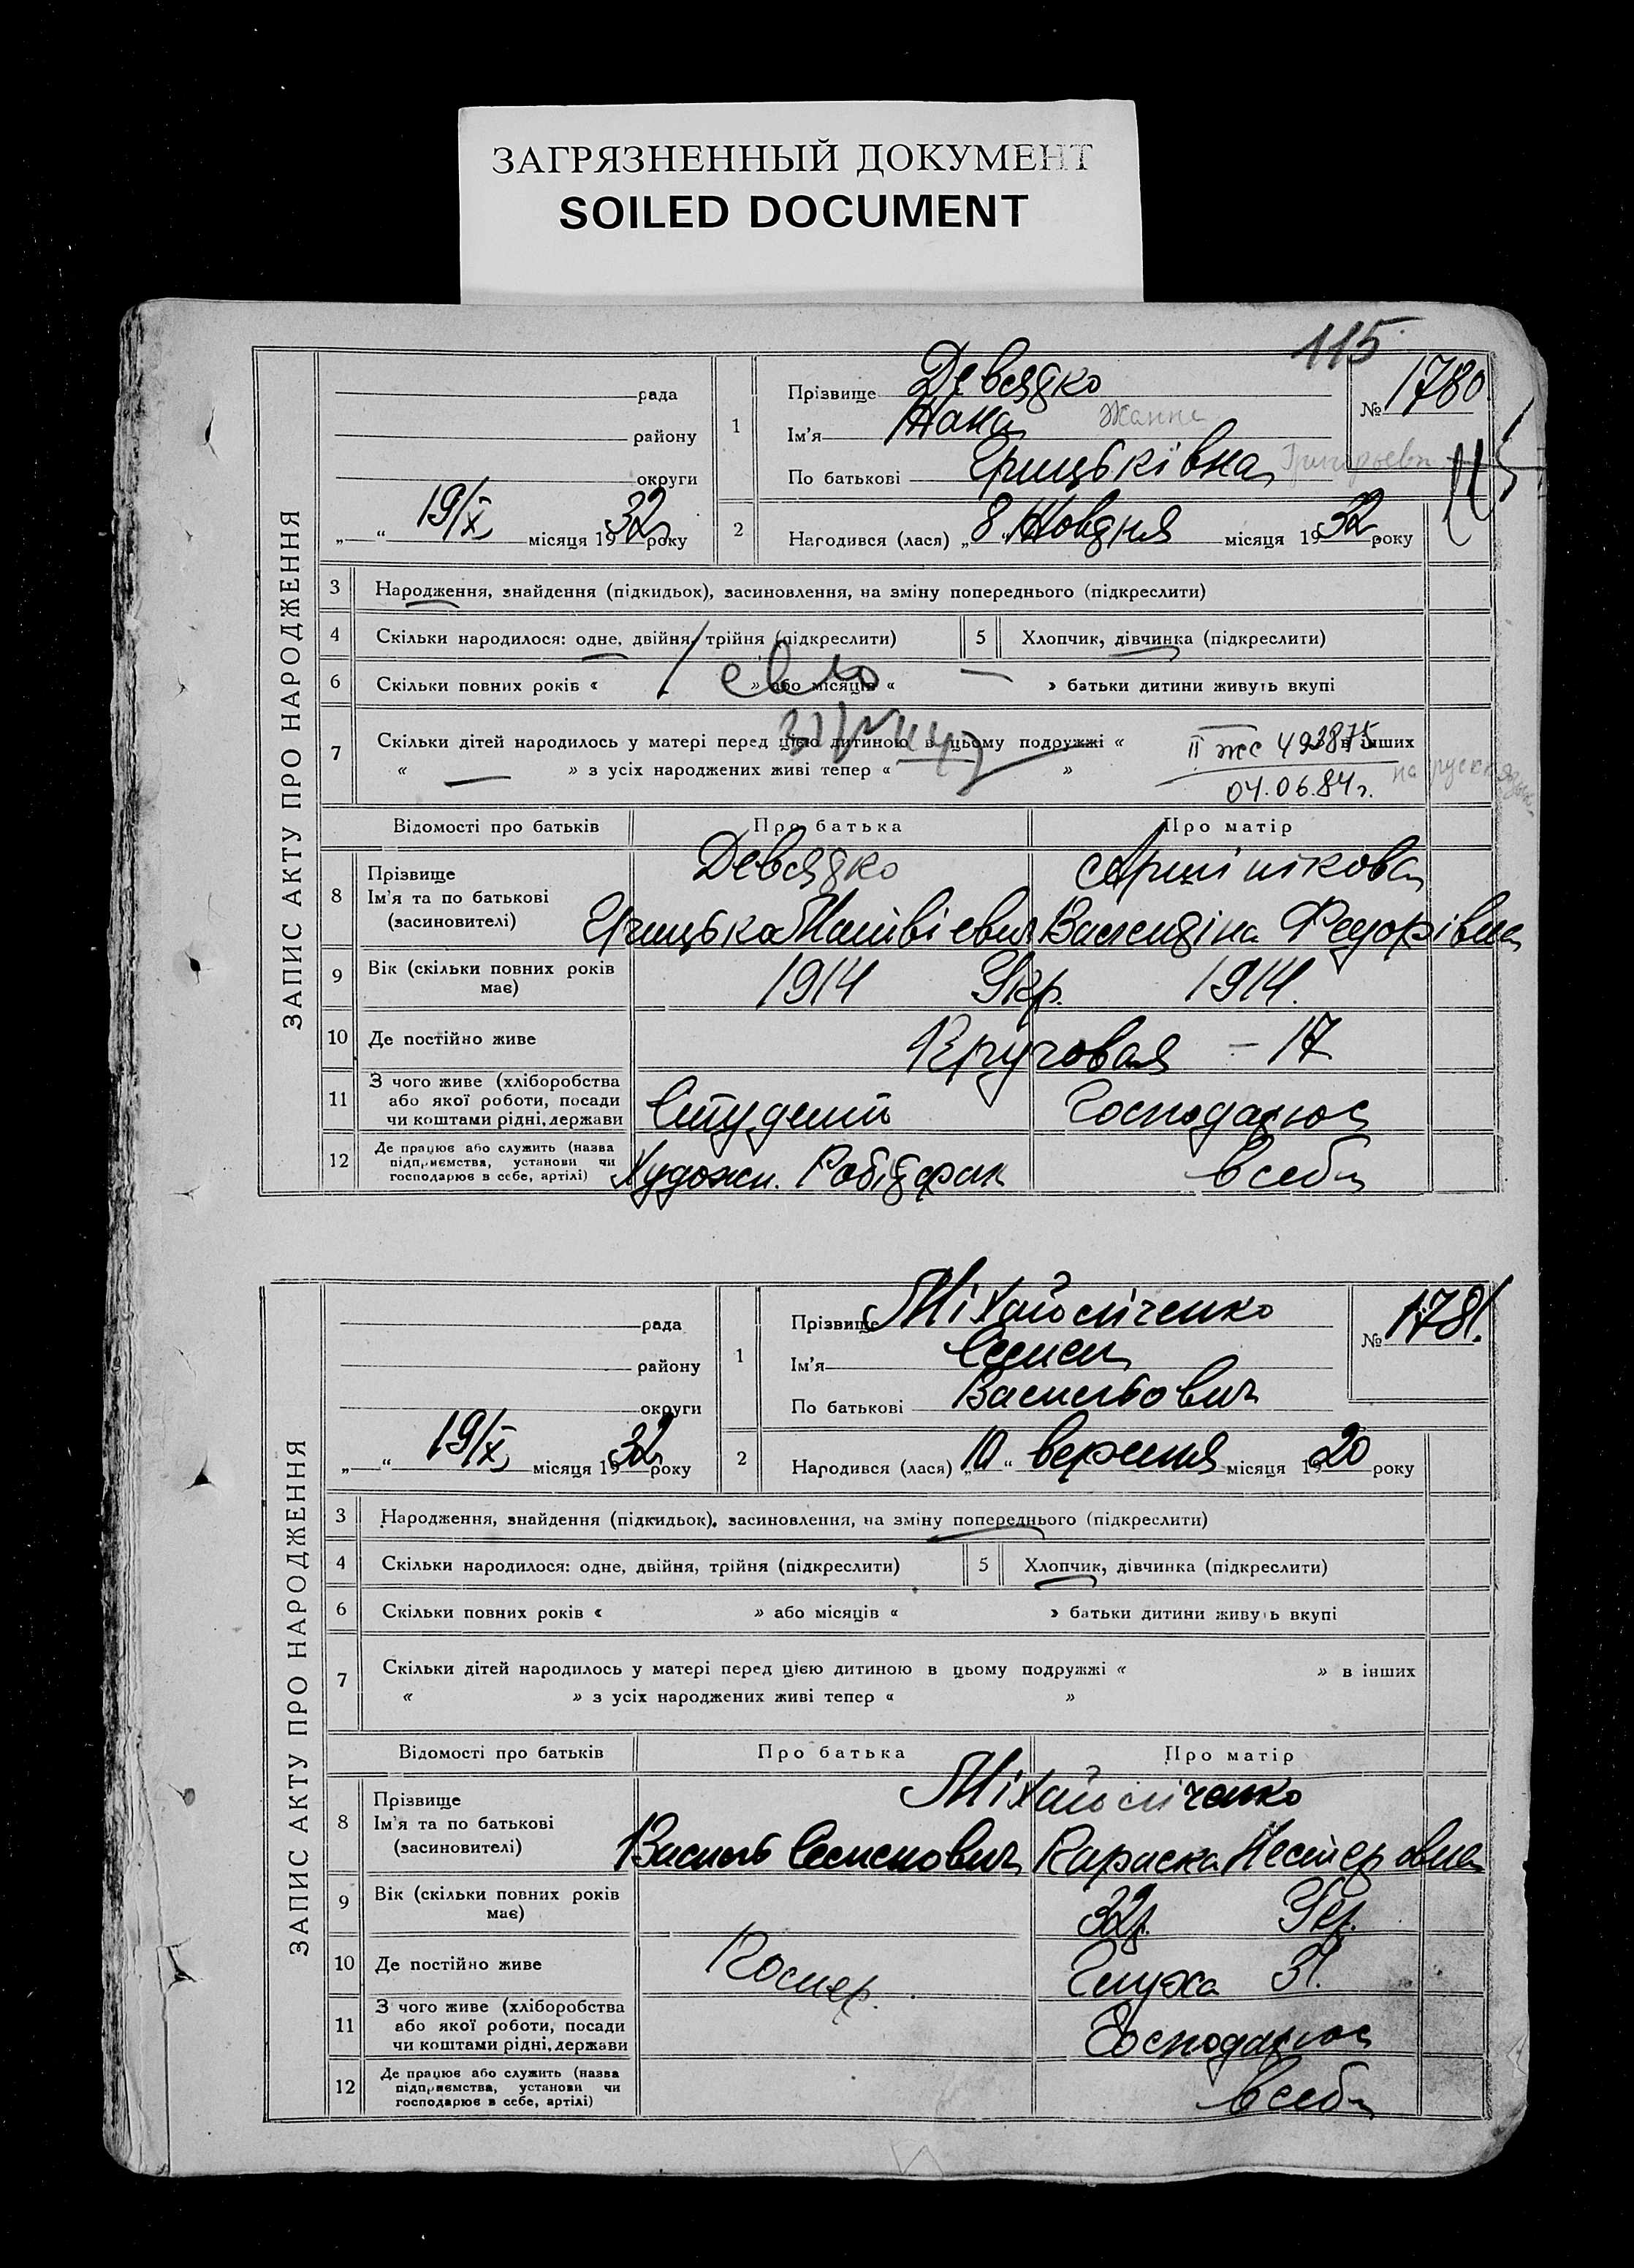 ЗАГРЯЗНЕННЫЙ ДОКУМЕНТ
SOILED DOCUMENT
115
ЗАПИС АКТУ ПРО НАРОДЖЕННЯ
рада
району
округи
„ “ 19/X місяця 1932 року
1
Прізвище Девядко
Ім'я Жана Жанна
По батькові Грицьківна Григорьевн
№ 1780
115
2
Народився (лася) „8“ Жовдня місяця 1932 року
3 Народження, знайдення (підкидьок), засиновлення, на зміну попереднього (підкреслити)
4 Скільки народилося: одне, двійня, трійня (підкреслити)
5 Хлопчик, дівчинка (підкреслити)
6 Скільки повних років « » або місяців « » батьки дитини живуть вкупі
7 Скільки дітей народилось у матері перед цією дитиною в цьому подружжі « » в інших
« — » з усіх народжених живі тепер « »
II жс 493875
04.06.84 г.
на русск
Відомості про батьків Про батька Про матір
8 Прізвище
Ім'я та по батькові
(засиновителі)
Девядко
Грицька Матвієвич
Валендіна Федорівна
9 Вік (скільки повних років має)
1914 Укр. 1914.
10 Де постійно живе
Круговая – 17
11 З чого живе (хліборобства
або якої роботи, посади
чи коштами рідні, держави
Студент
Господарює
12 Де працює або служить (назва
підприємства, установи чи
господарює в себе, артілі)
Художн. Робідфак
в себе
ЗАПИС АКТУ ПРО НАРОДЖЕННЯ
рада
району
округи
„ “ 19/X місяця 1932 року
1
Прізвище Міхайоліченко
Ім'я Семен
По батькові Васильович
№ 1781.
2
Народився (лася) „10“ вересня місяця 1920 року
3 Народження, знайдення (підкидьок), засиновлення, на зміну попереднього (підкреслити)
4 Скільки народилося: одне, двійня, трійня (підкреслити)
5 Хлопчик, дівчинка (підкреслити)
6 Скільки повних років « » або місяців « » батьки дитини живуть вкупі
7 Скільки дітей народилось у матері перед цією дитиною в цьому подружжі « » в інших
« » з усіх народжених живі тепер « »
Відомості про батьків Про батька Про матір
8 Прізвище
Ім'я та по батькові
(засиновителі)
Міхайоліченко
Василь Семенович
Параска Нестеровна
9 Вік (скільки повних років має)
32р. Укр.
10 Де постійно живе
Помер.
Глуха 31.
11 З чого живе (хліборобства
або якої роботи, посади
чи коштами рідні, держави
Господарює
12 Де працює або служить (назва
підприємства, установи чи
господарює в себе, артілі)
в себе